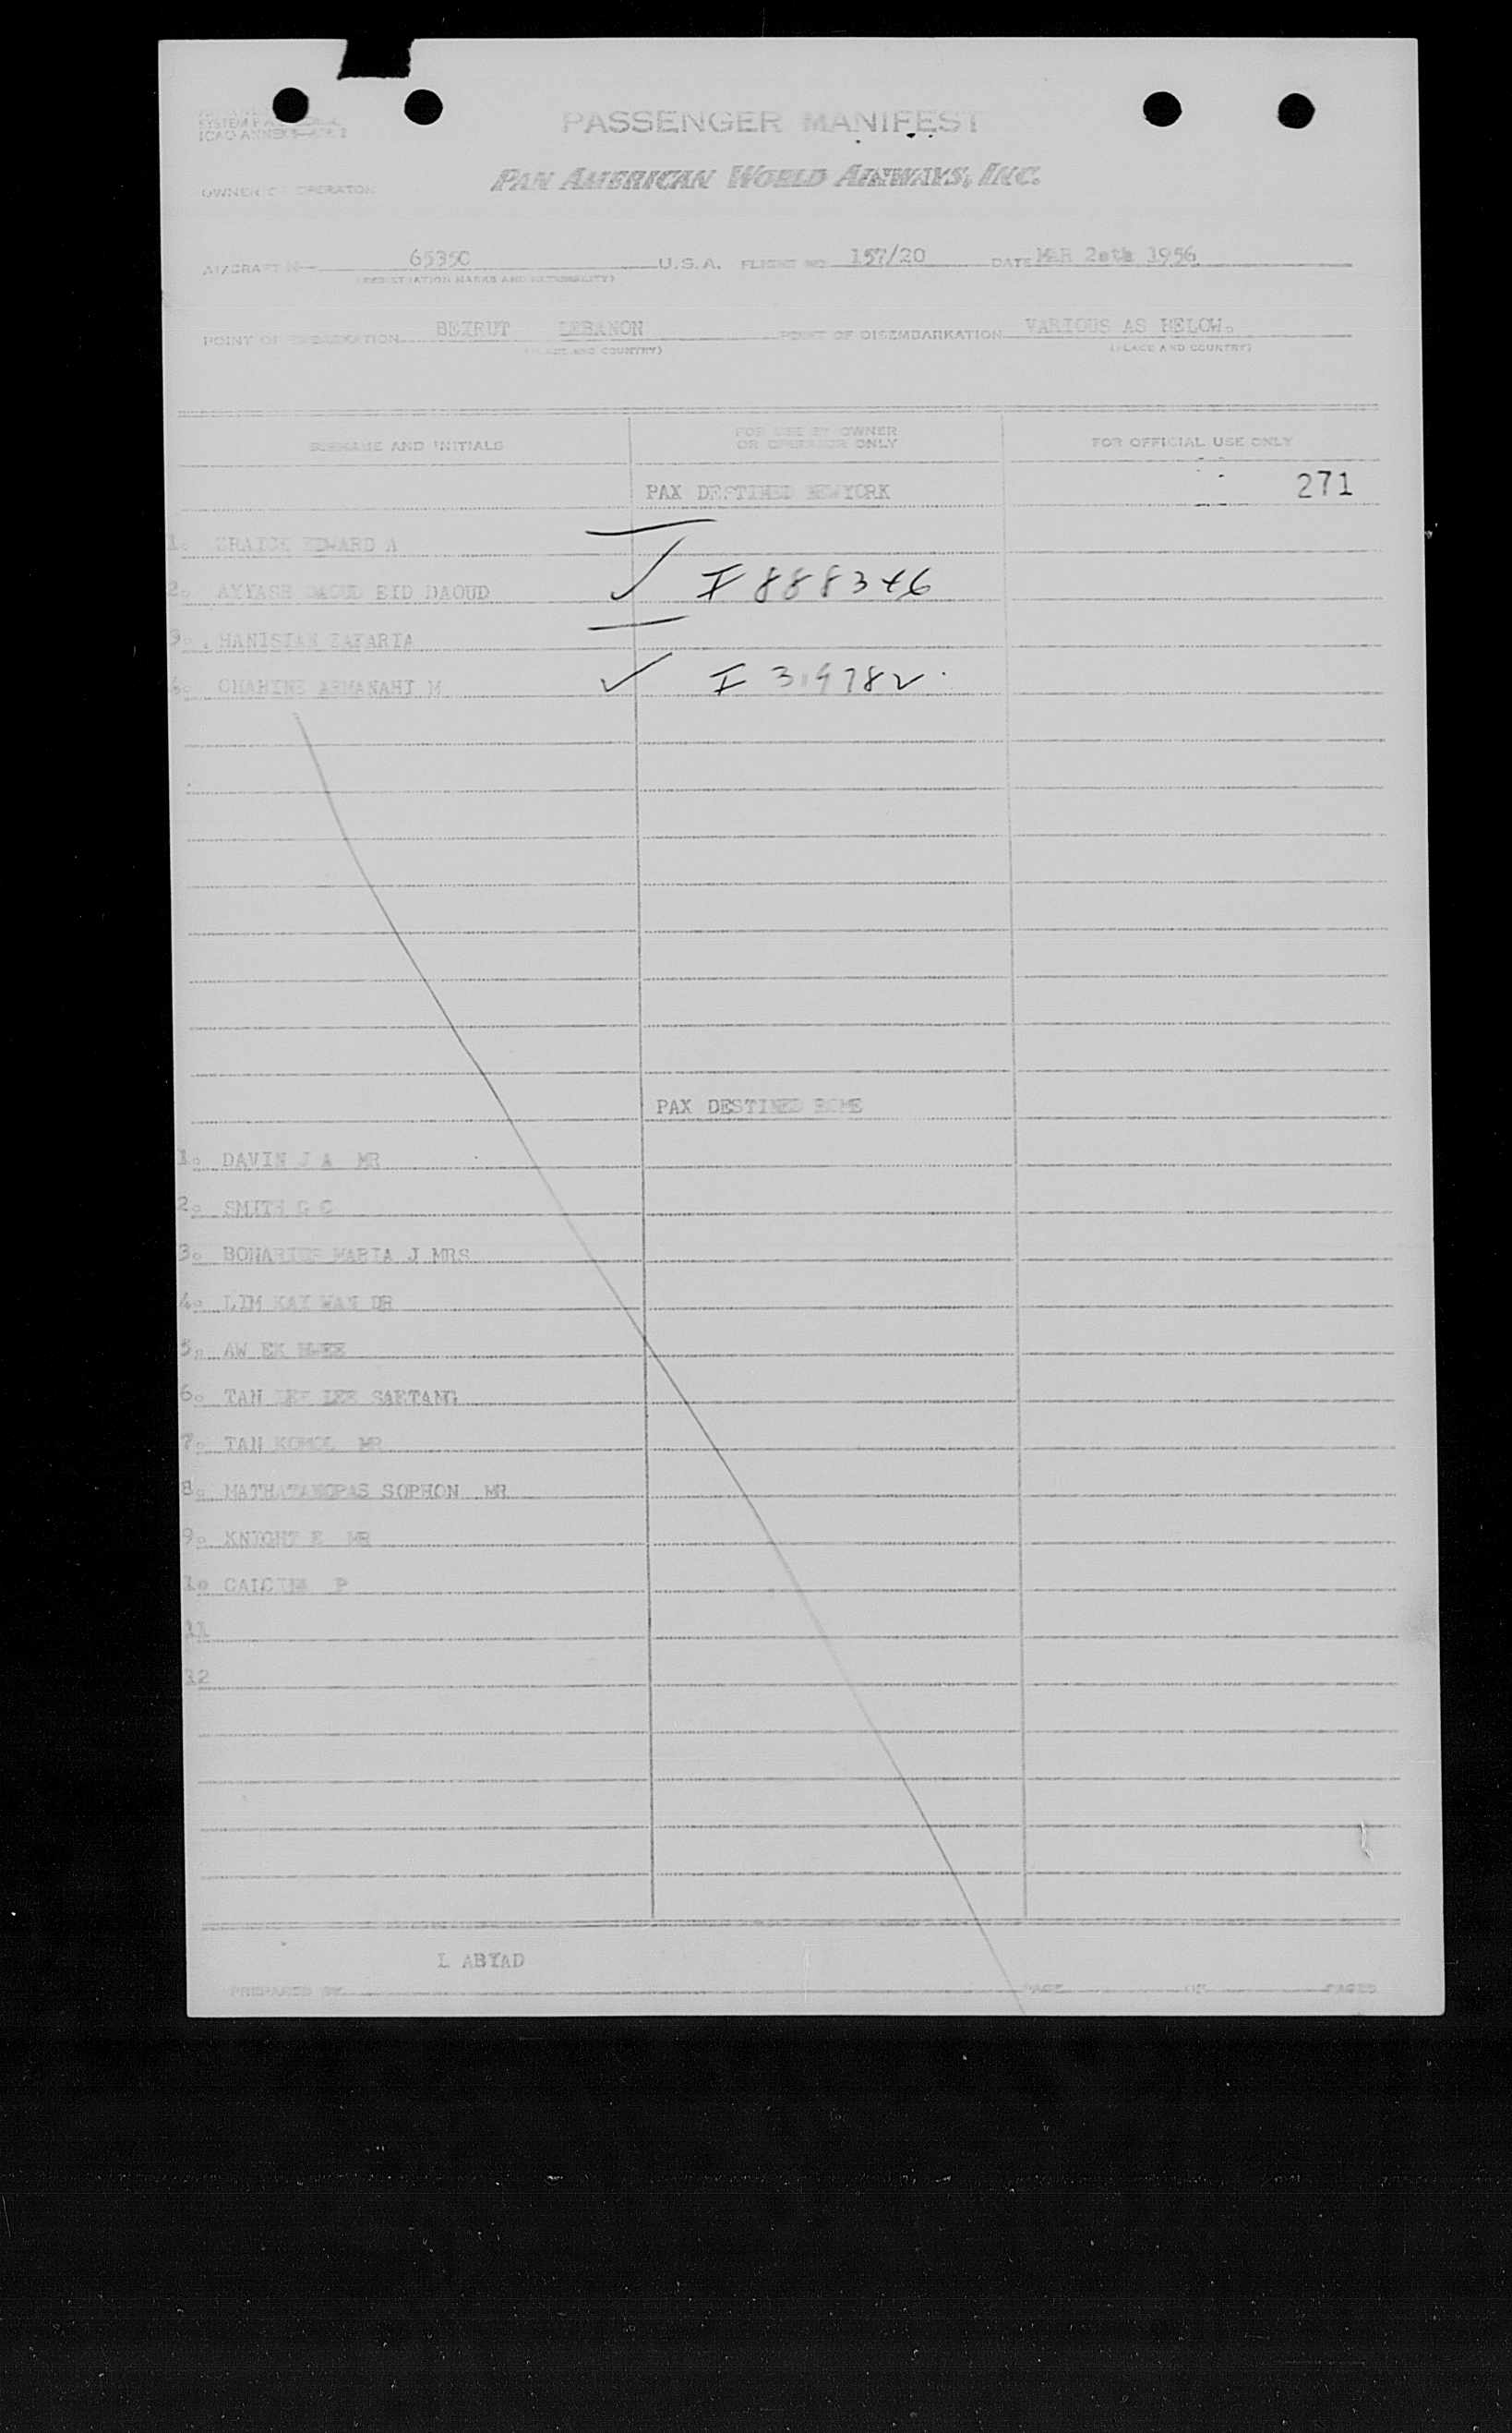 PASSENGER MANIFEST
PAN AMERICAN WORLD AIRWAYS, INC.
OWNER OR OPERATOR
AIRCRAFT 6535C U.S.A. FLIGHT NO 157/20 DATE MAR 1956
(REGISTRATION MARKS AND NATIONALITY)
POINT OF EMBARKATION BEIRUT LEBANON POINT OF DISEMBARKATION VARIOUS AS BELOW.
(PLACE AND COUNTRY) (PLACE AND COUNTRY)
SURNAME AND INITIALS FOR USE BY OWNER OR OPERATOR ONLY FOR OFFICIAL USE ONLY
PAX DESTINED NEWYORK 271
1. EDWARD A
2. AYYASH DAOUD EID DAOUD ✓ I 888346
3. ZAKARIA
4. CHAHINE M ✓ I 319782
PAX DESTINED ROME
1. DAVIN J A MR
2. SMITH G C
3. MARIA J MRS
4. LIM KAY WAN DR
5. AW EK HWEE
6. TAN LEE SAETANG
7. TAN KOMOL MR
8. SOPHON MR
9. KNIGHT E MR
10 P
11
12
L ABYAD
PREPARED BY PAGE OF PAGES